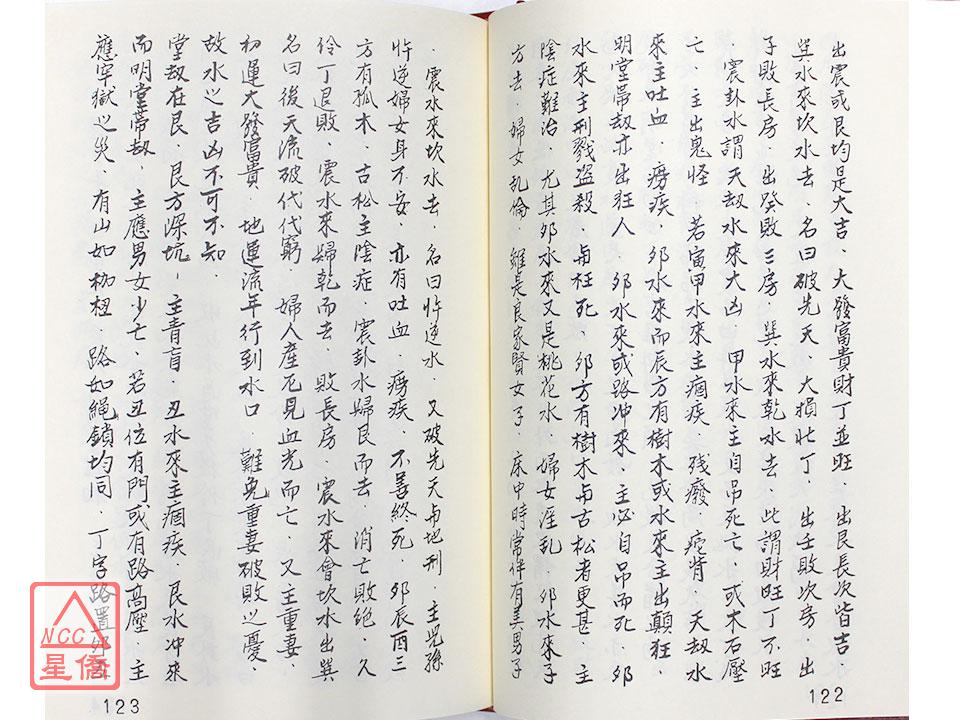 出震或艮均是大吉．大發富貴財丁並旺．出艮長次皆吉．
巽水來坎水去．名曰破先天．大損壯丁．出壬敗次房．出
子敗長房．出癸敗三房．巽水來乾水去．此謂財旺丁不旺
．震卦水謂天劫水來大凶．甲水來主自吊死亡．或木石壓
亡．主出鬼怪．若寅甲水來主痼疾．殘廢．痀背．天劫水
來主吐血．癆疾．卯水來而辰方有樹木或水來主出顛狂．
明堂帶劫亦出狂人．卯水來或路冲來．主必自吊而死．卯
水來主刑戮盜殺．与枉死．卯方有樹木与古松者更甚．主
陰症難治．尤其卯水來又是桃花水．婦女淫乱．卯水來子
方去．婦女乱倫．雖是良家賢女子．床中時常伴有美男子
．震水來坎水去．名曰忤逆水．又破先天与地刑．主兒孫
忤逆婦女身不安．亦有吐血．癆疾．不善終死．卯辰酉三
方有孤木．古松主陰症．震卦水歸艮而去．消亡敗絕．久
伶丁退敗．震水來歸乾而去．敗長房．震水來會坎水出巽
名曰後天流破代代窮．婦人產厄見血光而亡．又主重妻．
初運大發富貴．地運流年行到水口．難免重妻破敗之憂．
故水之吉凶不可不知．
堂劫在艮．艮方深坑．主青盲．丑水來主痼疾．艮水冲來
而明堂帶劫．主應男女少亡．若丑位有門或有路高壓．主
應牢獄之災．有山如枷杻．路如繩鎖均同．丁字路置
122
123
NCC
星僑